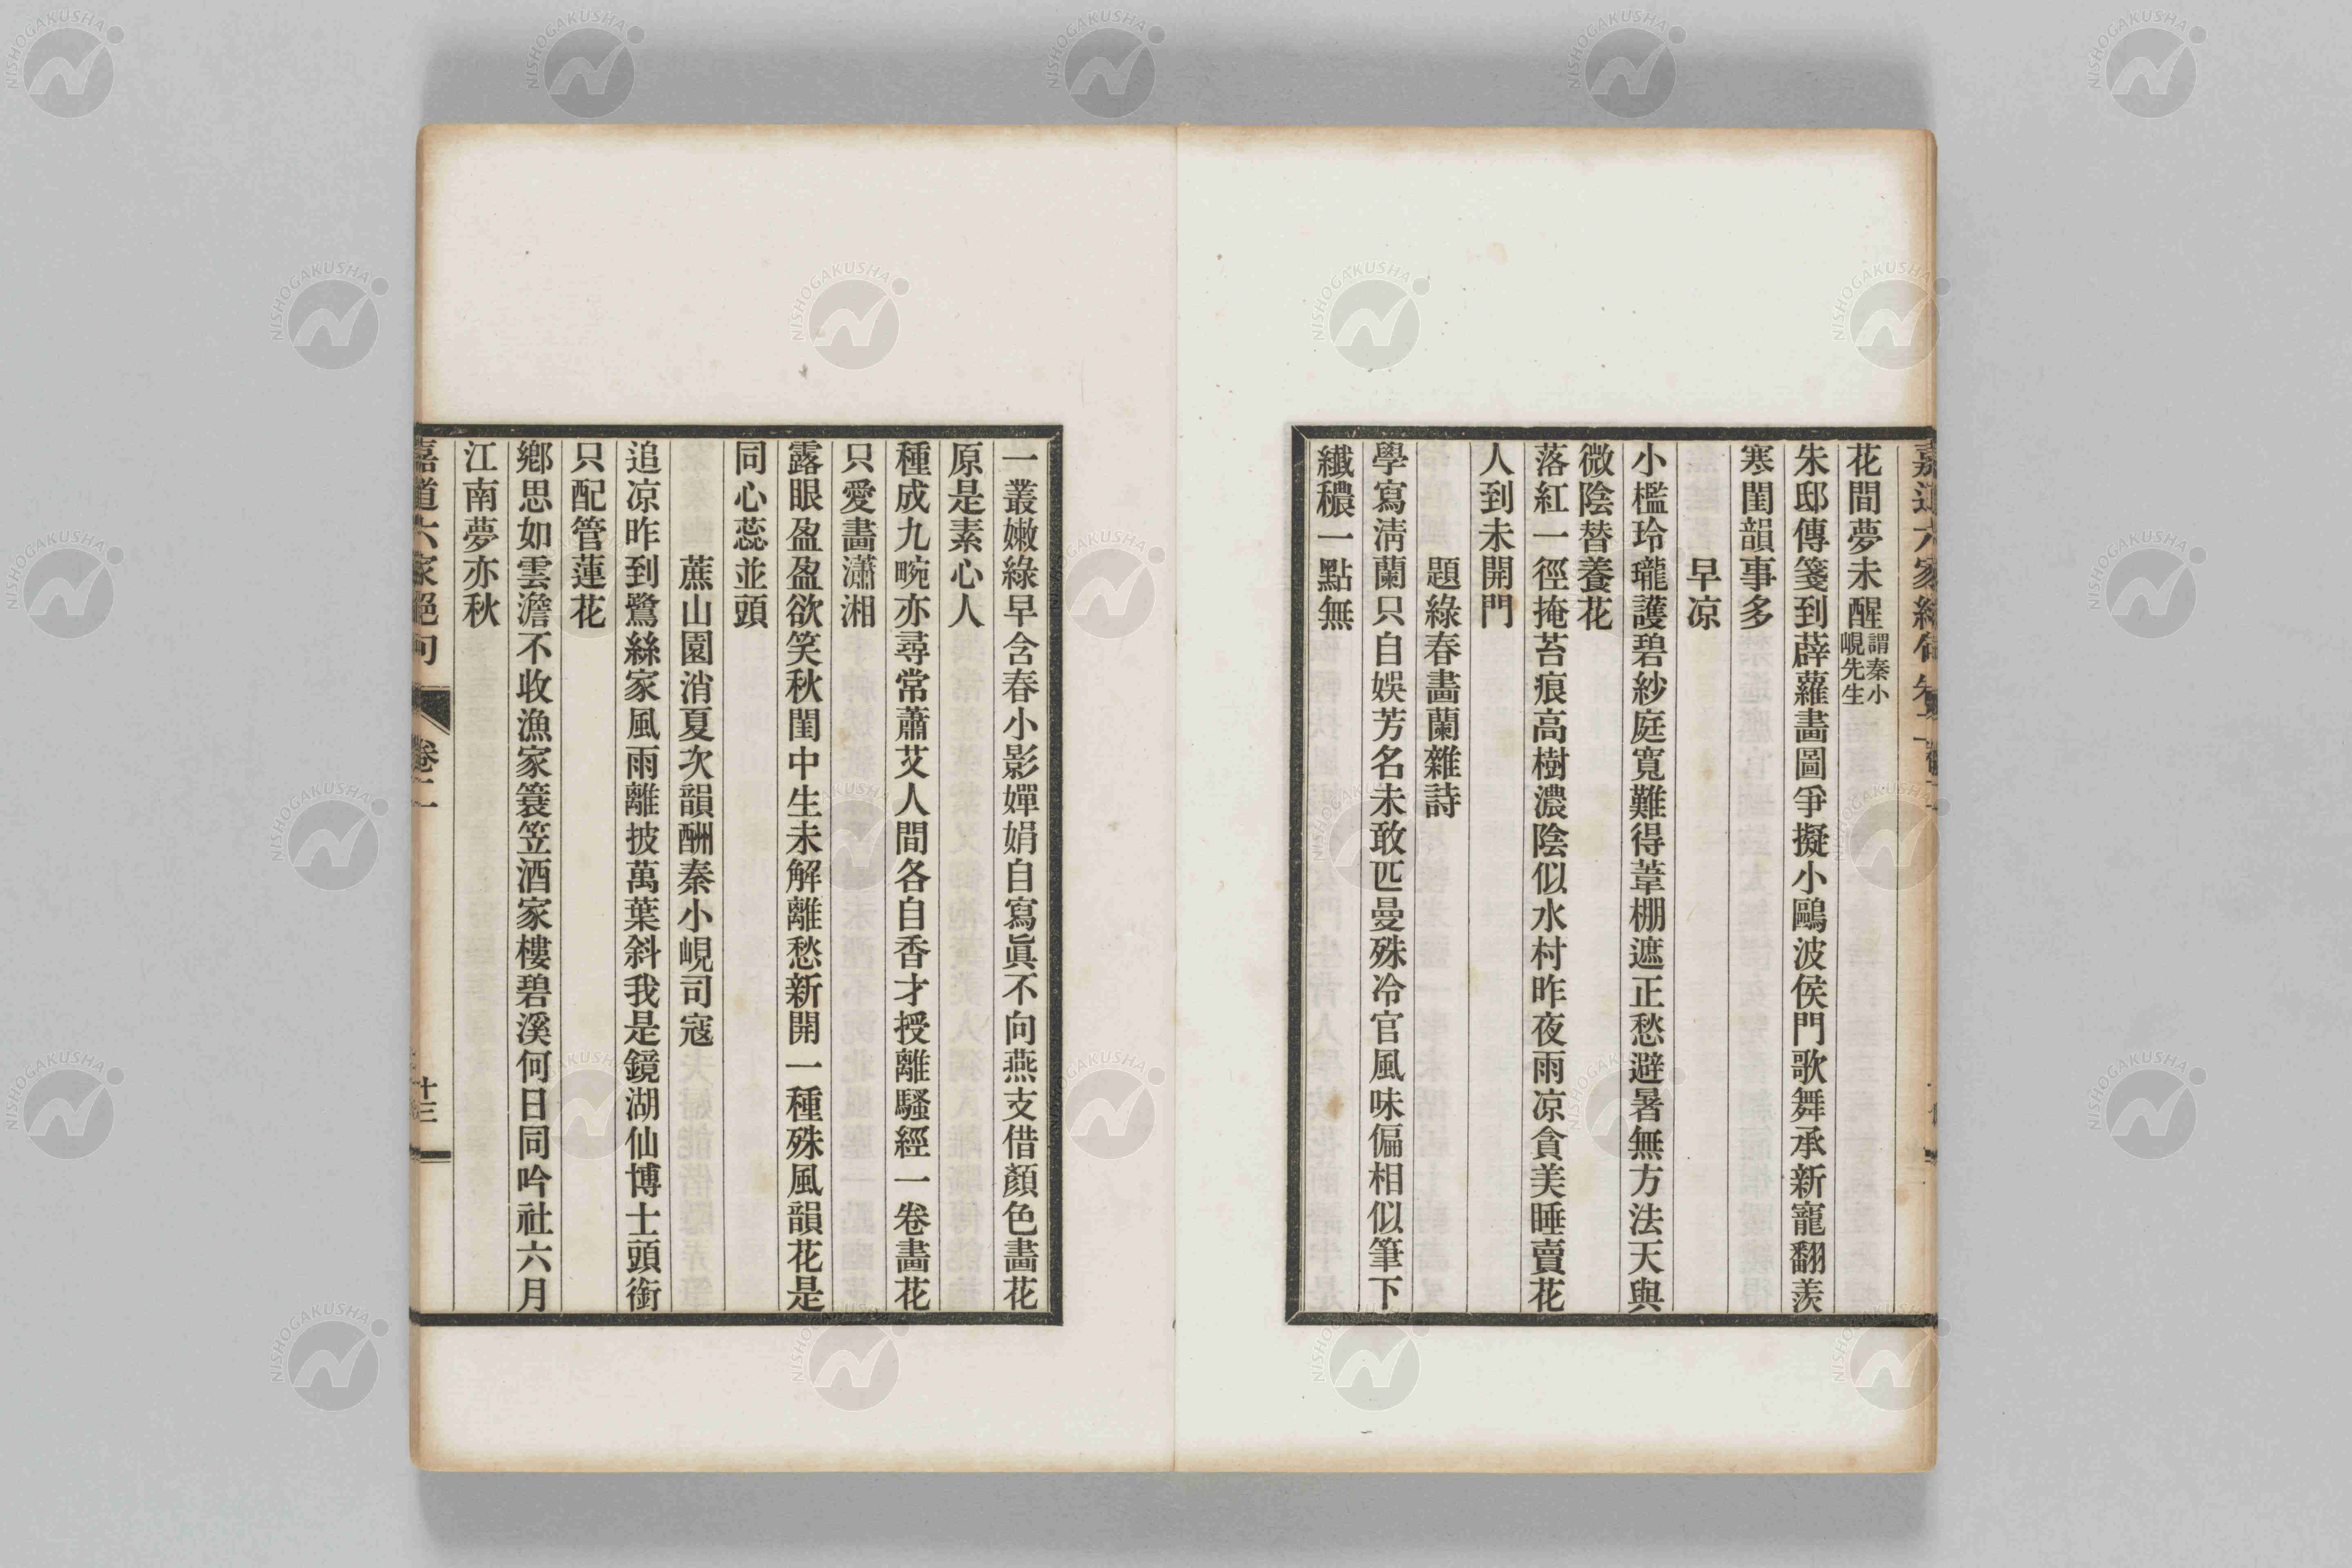 花間夢未醒謂秦小峴先生
朱邸傳箋到薜蘿畫圖爭擬小鷗波侯門歌舞承新寵翻羨
寒閨韻事多
早凉
小檻玲瓏護碧紗庭寬難得葦棚遮正愁避暑無方法天與
微陰替養花
落紅一徑掩苔痕高樹濃陰似水村昨夜雨凉貪美睡賣花
人到未開門
題綠春畫蘭雜詩
學寫淸蘭只自娛芳名未敢匹曼殊冷官風味偏相似筆下
纖穠一點無
一叢嫩綠早含春小影嬋娟自寫眞不向燕支借顏色畫花
原是素心人
種成九畹亦尋常蕭艾人間各自香才授離騷經一卷畫花
只愛畫瀟湘
露眼盈盈欲笑秋閨中生未解離愁新開一種殊風韻花是
同心蕊並頭
蔗山園消夏次韻酬秦小峴司寇
追凉昨到鷺絲家風雨離披萬葉斜我是鏡湖仙博士頭銜
只配管蓮花
鄉思如雲澹不收漁家簑笠酒家樓碧溪何日同吟社六月
江南夢亦秋
嘉道六家絕句
卷二
十三
NISHOGAKUSHA